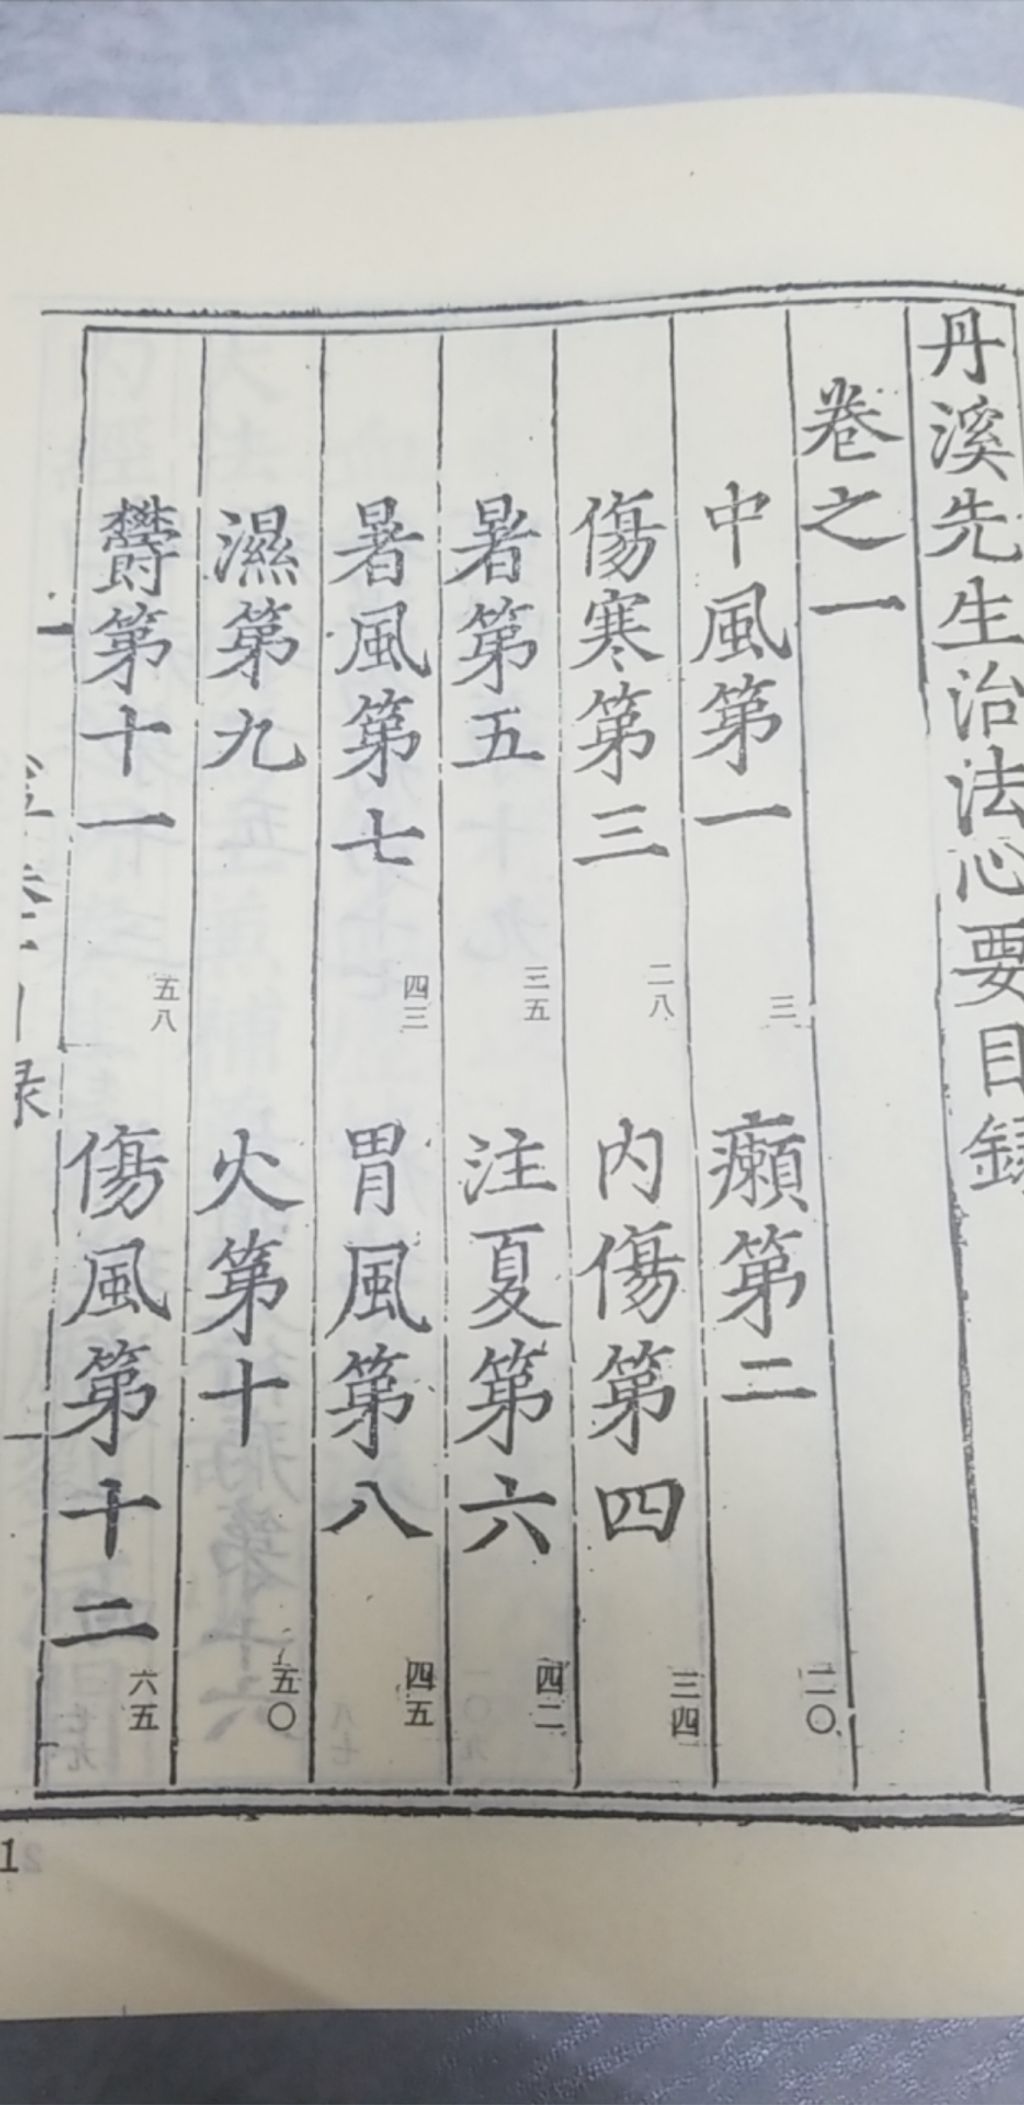 丹溪先生治法心要目錄
卷之一
中風第一 三 癩第二 二〇
傷寒第三 二八 内傷第四 三四
暑第五 三五 注夏第六 四二
暑風第七 四三 胃風第八 四五
濕第九 火第十 五〇
欝第十一 五八 傷風第十二 六五
1